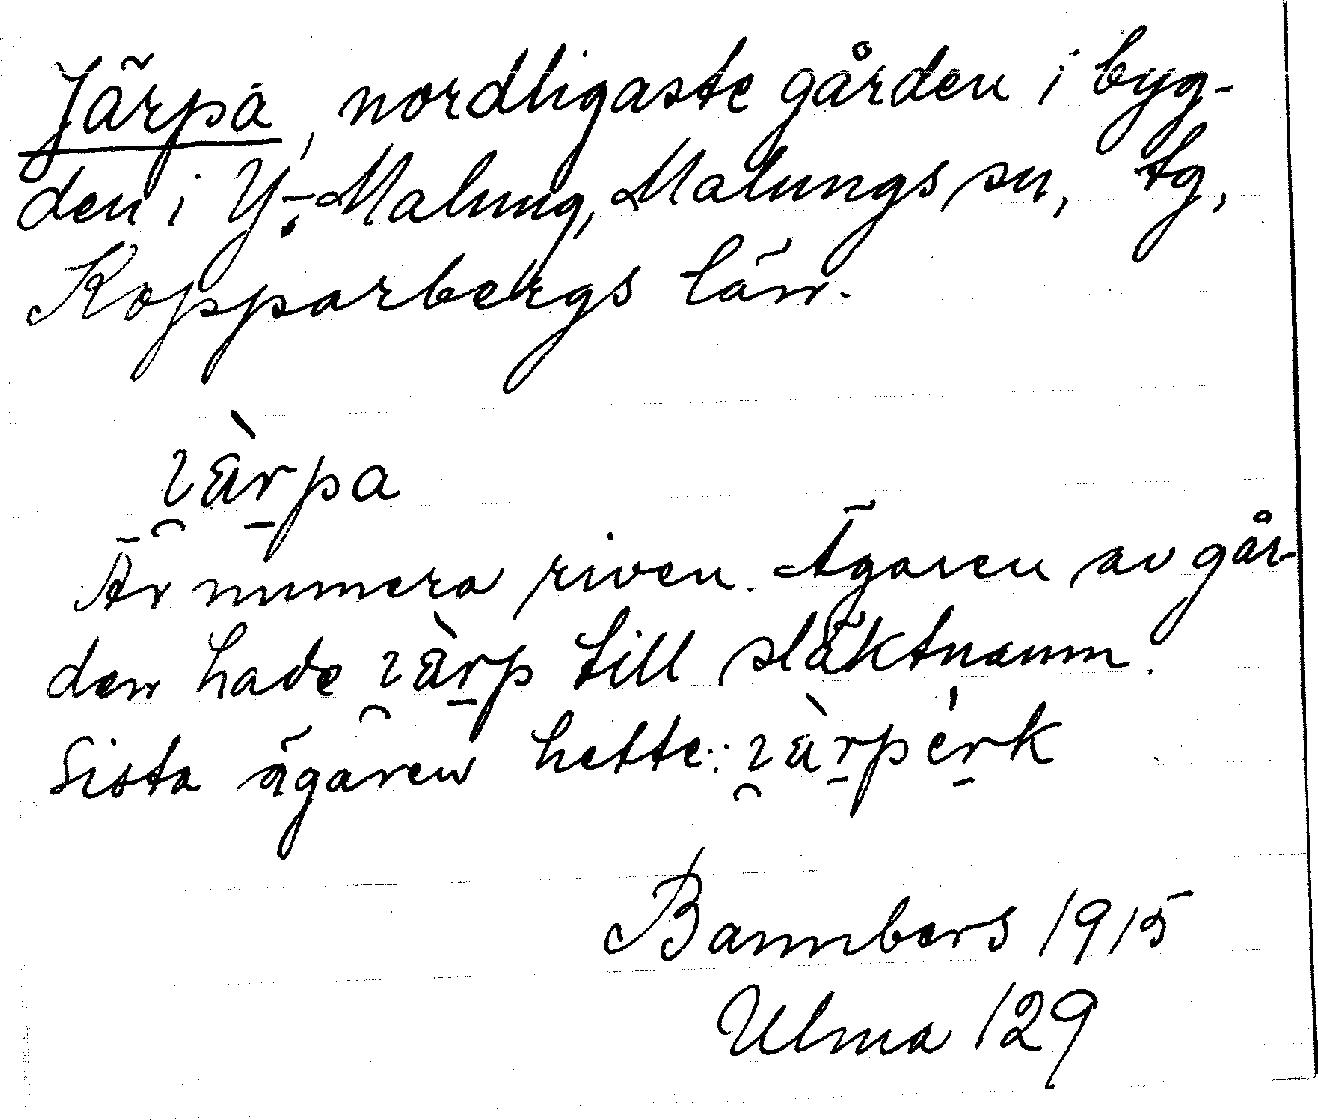 Järpa, nordligaste gården i byg-
den i Y. Malung, Malungs sn, tg,
Kopparbergs län.
ı̯ä̀r̠pa
Är numera riven. Ägaren av går-
den hade ı̯ä̀r̠p till släktnamn.
Sista ägaren hette: ı̯ä̀r̠pér̠k
Bannbers 1915
Ulma 129